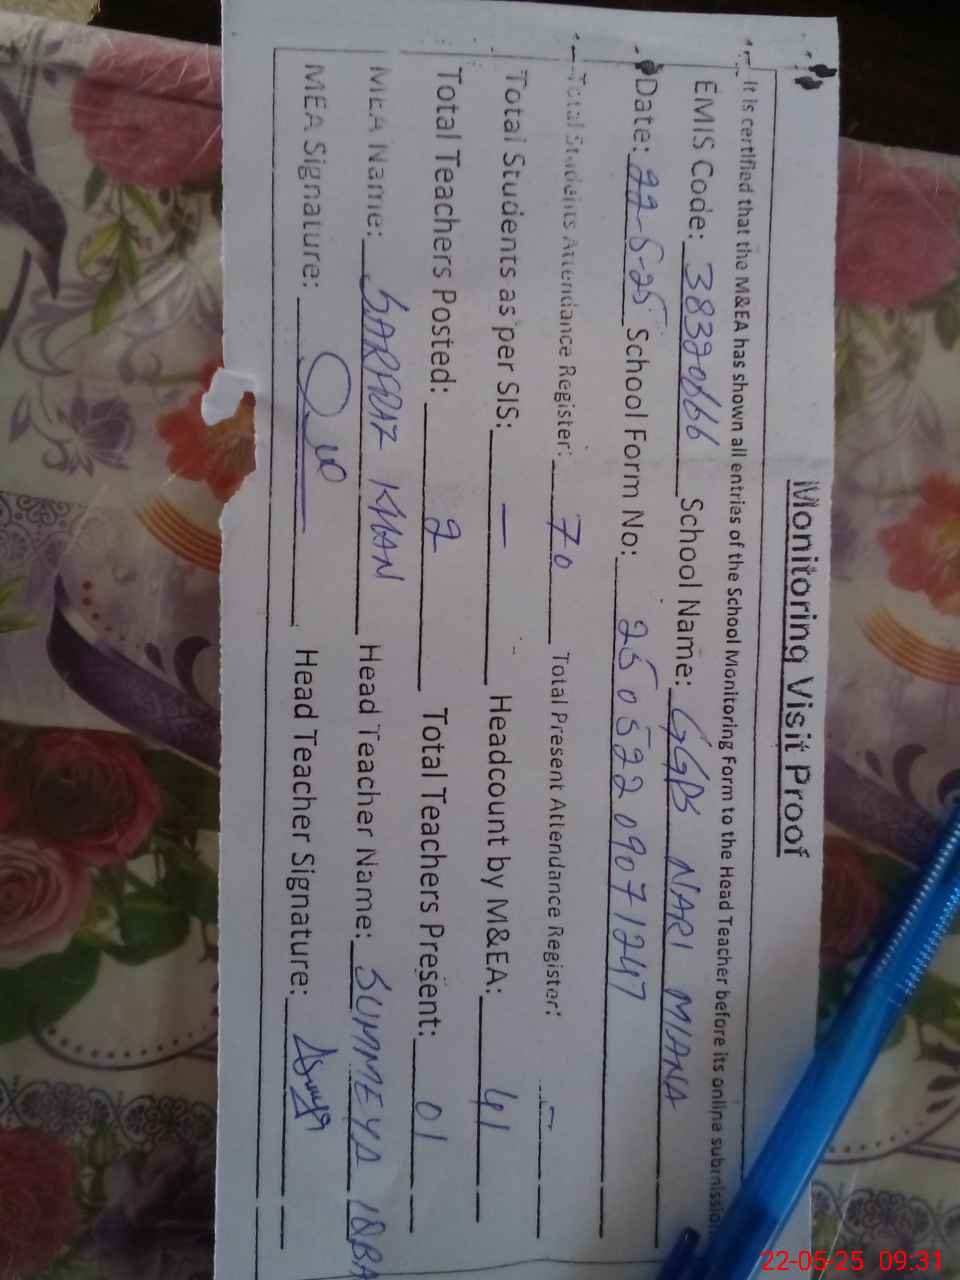 Monitoring Visit Proof
It is certified that the M&EA has shown all entries of the School Monitoring Form to the Head Teacher before its online submission
EMIS Code: 38320666 School Name: GGPS NARI MIANA
Date: 22-5-25 School Form No: 25052209071247
Total Students Attendance Register: 70 Total Present Attendance Register:
Total Students as per SIS: — Headcount by M&EA: 41
Total Teachers Posted: 2 Total Teachers Present: 01
MEA Name: SARFRAZ KHAN Head Teacher Name: SUMMEYA IQBA
MEA Signature: Head Teacher Signature:
22-05-25 09:31